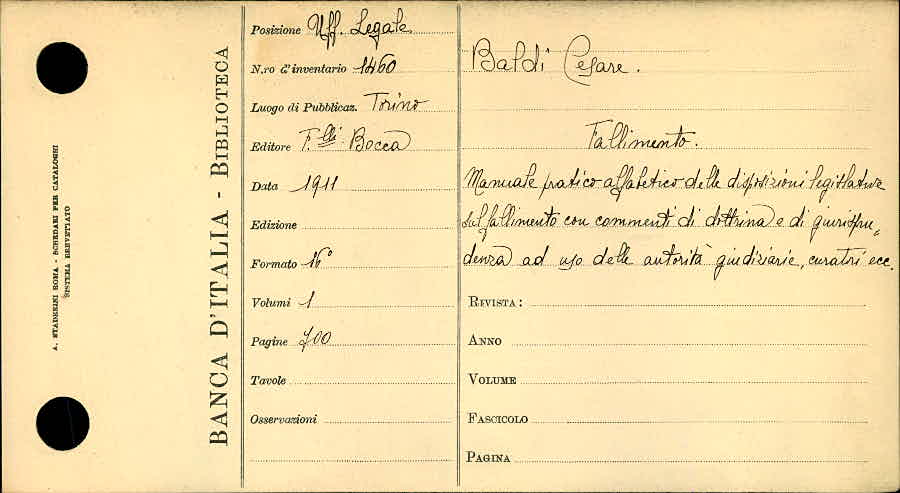 A. STADERINI ROMA - SCHEDARI PER CATALOGHI
SISTEMA BREVETTATO
BANCA D'ITALIA - BIBLIOTECA
Posizione Uff. Legale
N.ro d'inventario 1460
Luogo di Pubblicaz. Torino
Editore F.lli Bocca
Data 1911
Edizione
Formato 16°
Volumi 1
Pagine 700
Tavole
Osservazioni
Baldi Cesare.
Fallimento.
Manuale pratico alfabetico delle disposizioni legislative
sul fallimento con commenti di dottrina e di giurispru„
denza ad uso delle autorità giudiziarie, curatri ecc.
RIVISTA:
ANNO
VOLUME
FASCICOLO
PAGINA